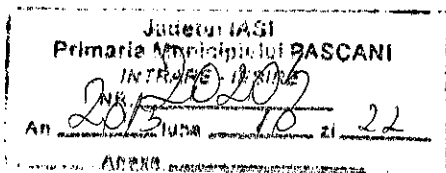 Judetul IASI
Primaria Municipiului PASCANI
INTRARE - IESIRE
NR. 20205
An 2015 luna 10 zi 22
Anexe